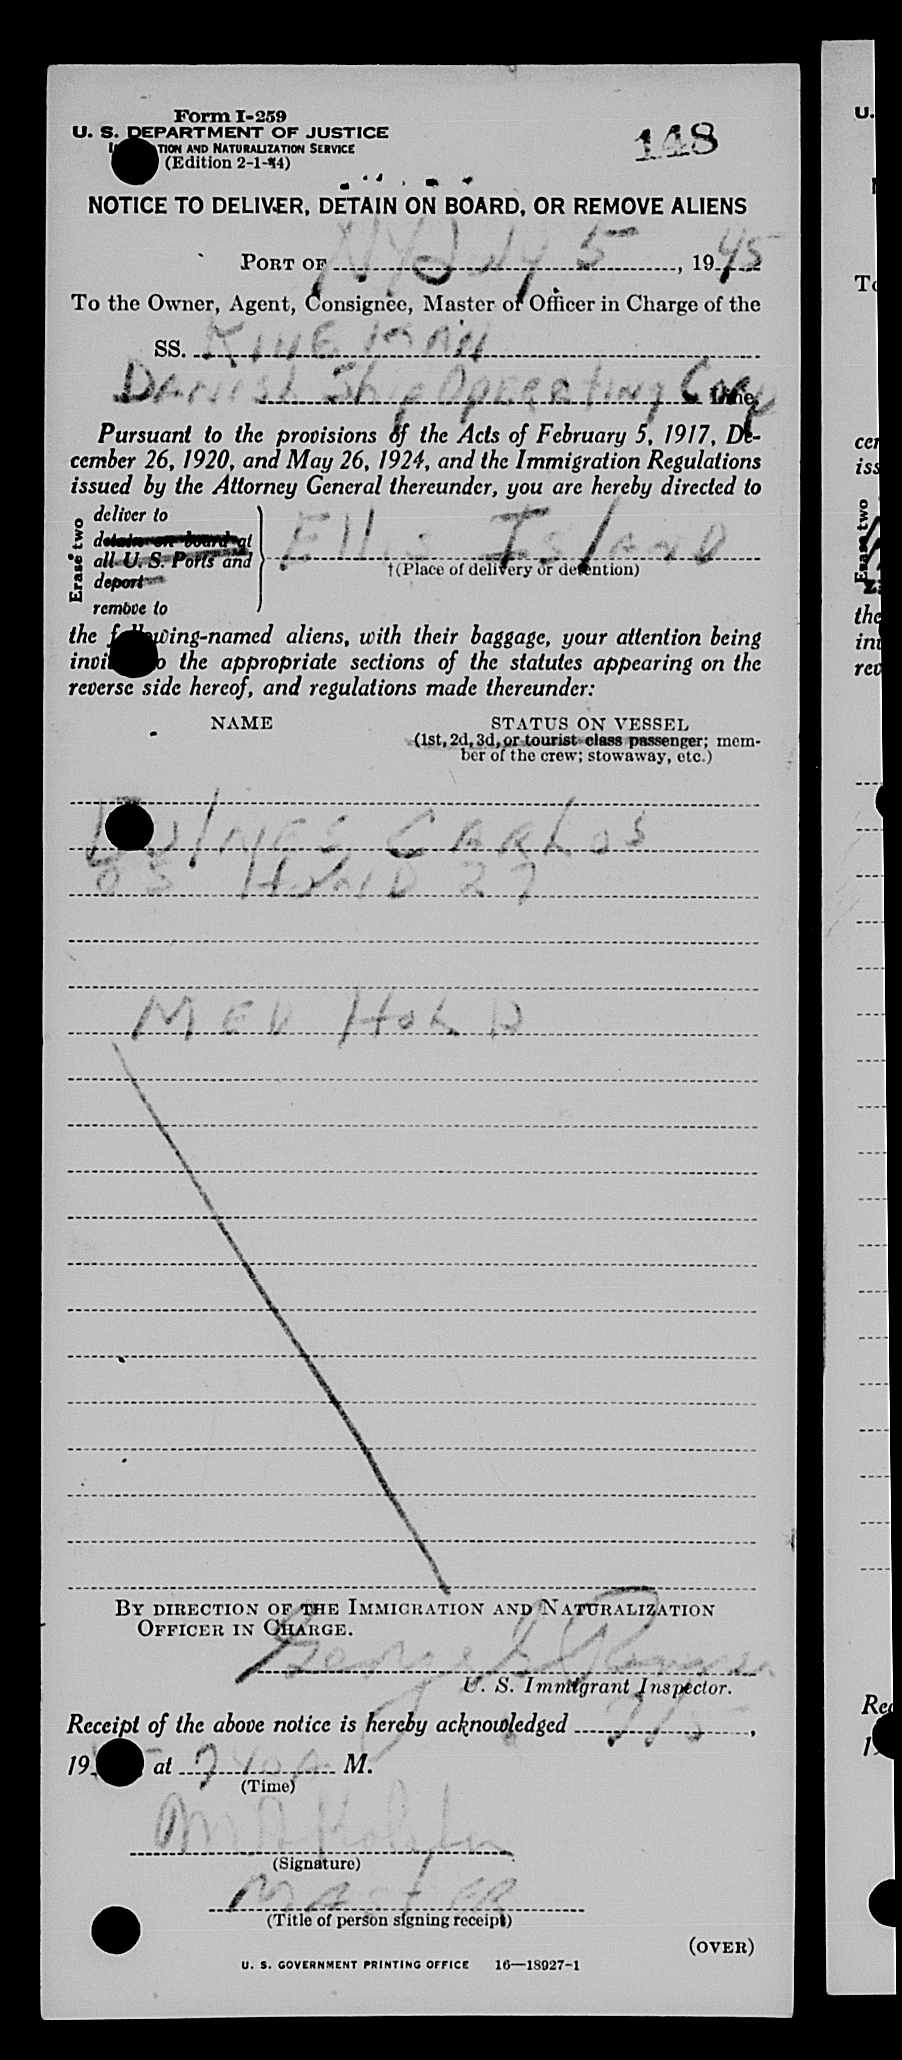 Form I-259
U. S. DEPARTMENT OF JUSTICE
148
NATURALIZATION SERVICE
(Edition 2-1-44)
NOTICE TO DELIVER, DETAIN ON BOARD, OR REMOVE ALIENS
PORT OF NY July 5, 1945
To the Owner, Agent, Consignee, Master or Officer in Charge of the
SS. KINGMAN
Danish Ship Operating Corp Line.
Pursuant to the provisions of the Acts of February 5, 1917, De-
cember 26, 1920, and May 26, 1924, and the Immigration Regulations
issued by the Attorney General thereunder, you are hereby directed to
Erase two
deliver to
detain on board at
all U. S. Ports and
deport
remove to
Ellis Island
†(Place of delivery or detention)
the following-named aliens, with their baggage, your attention being
to the appropriate sections of the statutes appearing on the
reverse side hereof, and regulations made thereunder:
NAME
STATUS ON VESSEL
(1st, 2d, 3d, or tourist class passenger; mem-
ber of the crew; stowaway, etc.)
CARLOS
OS 27
MED HOLD
BY DIRECTION OF THE IMMIGRATION AND NATURALIZATION
OFFICER IN CHARGE.
George
U. S. Immigrant Inspector.
Receipt of the above notice is hereby acknowledged 7/5,
19 at 740 A M.
(Time)
(Signature)
MASTER
(Title of person signing receipt)
(OVER)
U. S. GOVERNMENT PRINTING OFFICE 16—18927-1